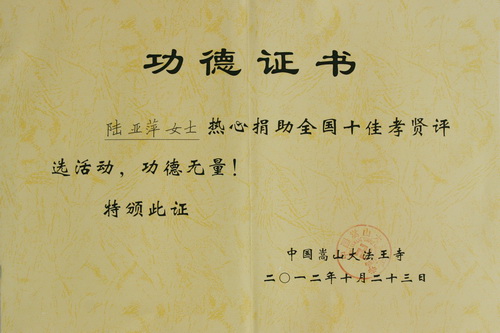 功德证书
陆亚萍女士热心捐助全国十佳孝贤评
选活动，功德无量！
特颁此证
中国嵩山大法王寺
二〇一二年十月二十三日